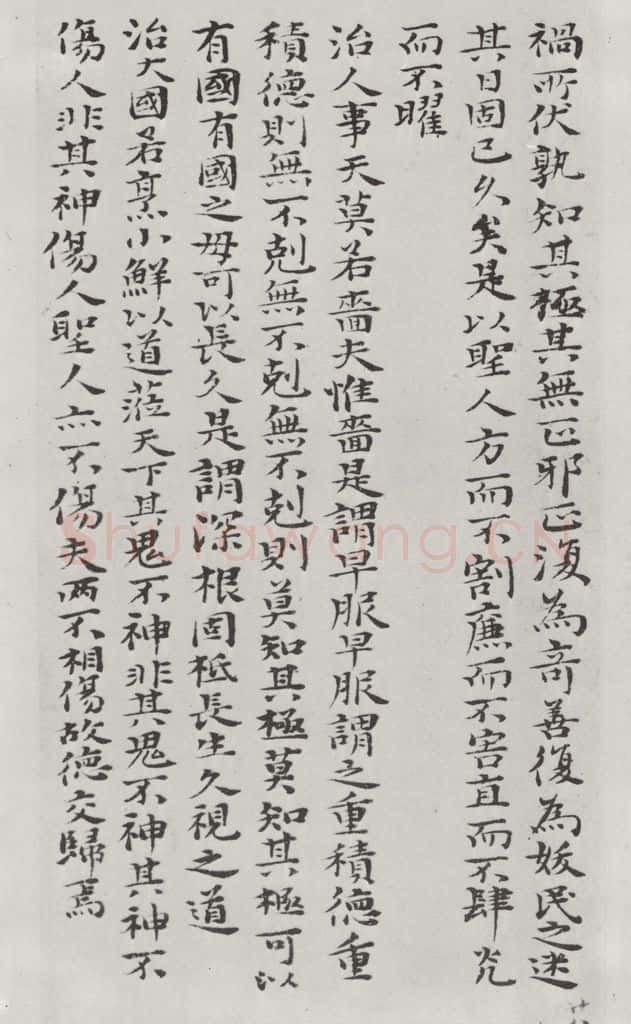 禍所伏孰知其極其無正邪正復為奇善復為妖民之迷
其日固已久矣是以聖人方而不割廉而不害直而不肆光
而不曜
治人事天莫若嗇夫惟嗇是謂早服早服謂之重積德重
積德則無不剋無不剋無不剋則莫知其極莫知其極可以
有國有國之母可以長久是謂深根固柢長生久視之道
治大國若烹小鮮以道蒞天下其鬼不神非其鬼不神其神不
傷人非其神傷人聖人亦不傷夫兩不相傷故德交歸焉
Shufawang.CN